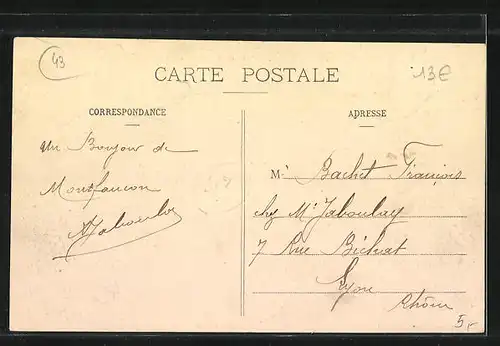 43
CARTE POSTALE
13€
CORRESPONDANCE
ADRESSE
un Bonjour de
Montfaucon
AJaboulay
Mr Bachet François
chez Mr Jaboulay
7 Rue Bichat
Lyon
Rhône
5,-